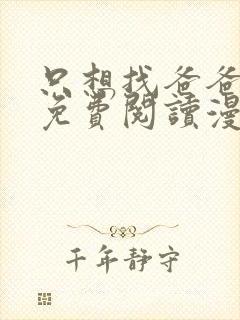 只想找爸爸
免費閱讀漫
千年靜守